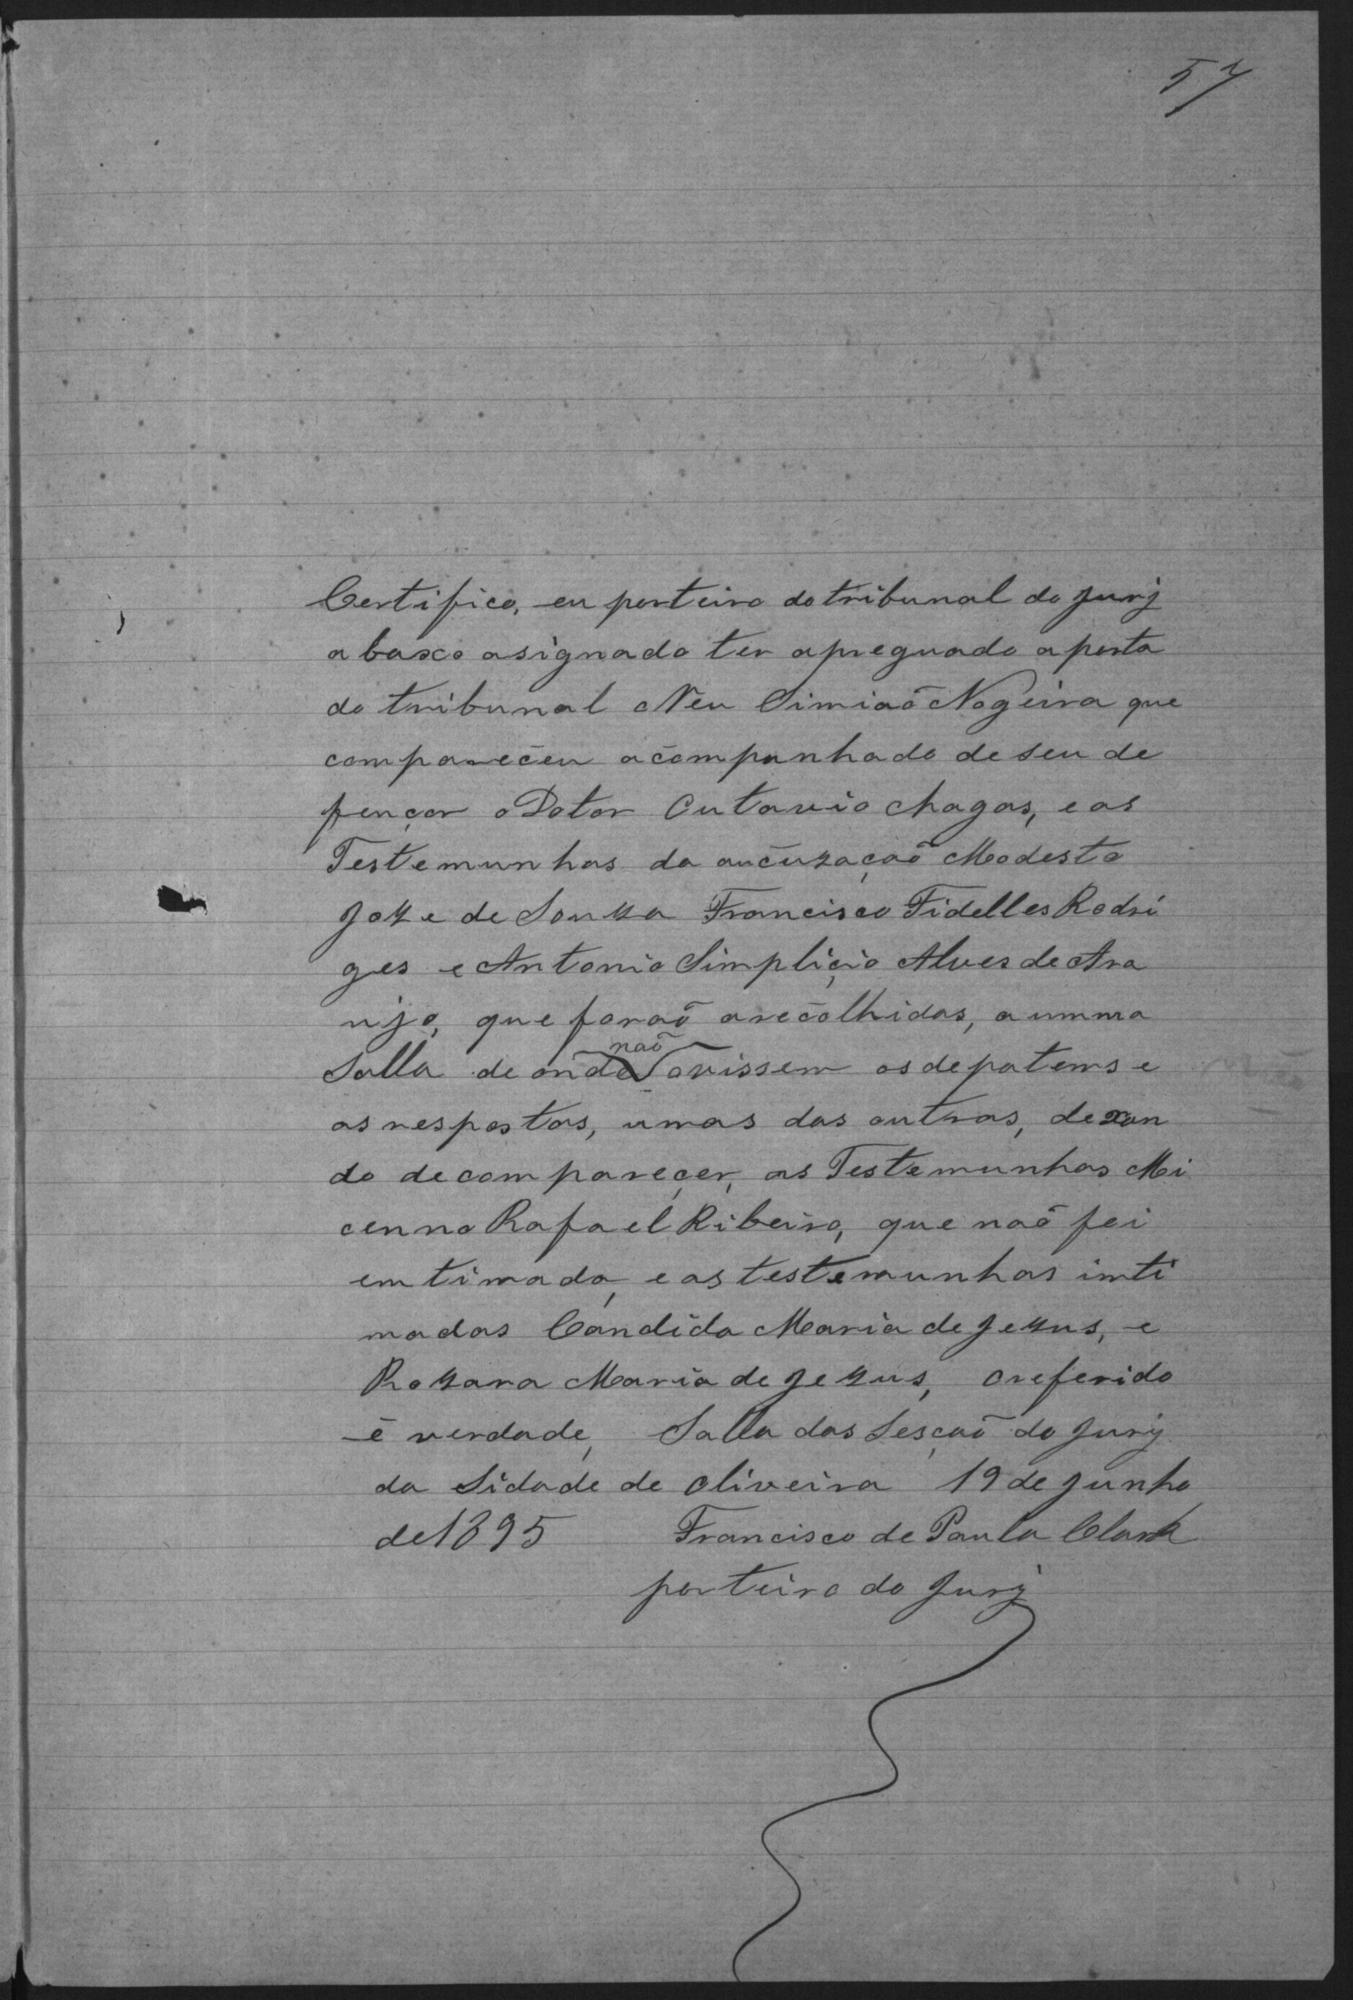 57
Certifico, eu porteiro do tribunal do jurj
abaxo asignado ter apreguado a porta
do tribunal o Reu Simiaõ Nogeira que
compareceu acompanhado de seu de
fençor o Dotor Outavio Chagas, e as
Testemunhas da aucuzaçaõ Modesto
Joze de Souza Francisco Fidelles Rodri
ges e Antonio Simpliçio Alves de Ara
ujo, que foraõ arecolhidas, a umma
Salla de onde
naõ
ovissem os depatems e
as respostas, umas das outras, dexan
do de compareçer, as Testemunhas Mi
cenno Rafael Ribeiro, que naõ foi
emtimado, e as testemunhas imti
madas Candida Maria de Jezus, e
Rozara Maria de Jezus, o referido
é verdade, Salla das Sesçaõ do Jurj
da Sidade de Oliveira 19 de Junho
de 1895 Francisco de Paula Clark
porteiro do Jurj